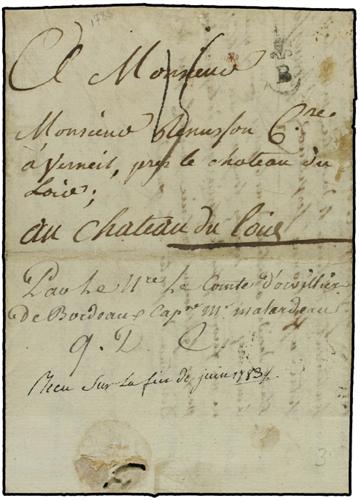 1783
A Monsieur
15
B
Monsieur Renusson
à Verneil, pres le chateau du
Loir;
au chateau du Loir
Par Le Nre Le Comte d'orvillier
De Bordeaux Cape Mr malardeau
q. D. C
Recu Sur La fin de juin 1783
3